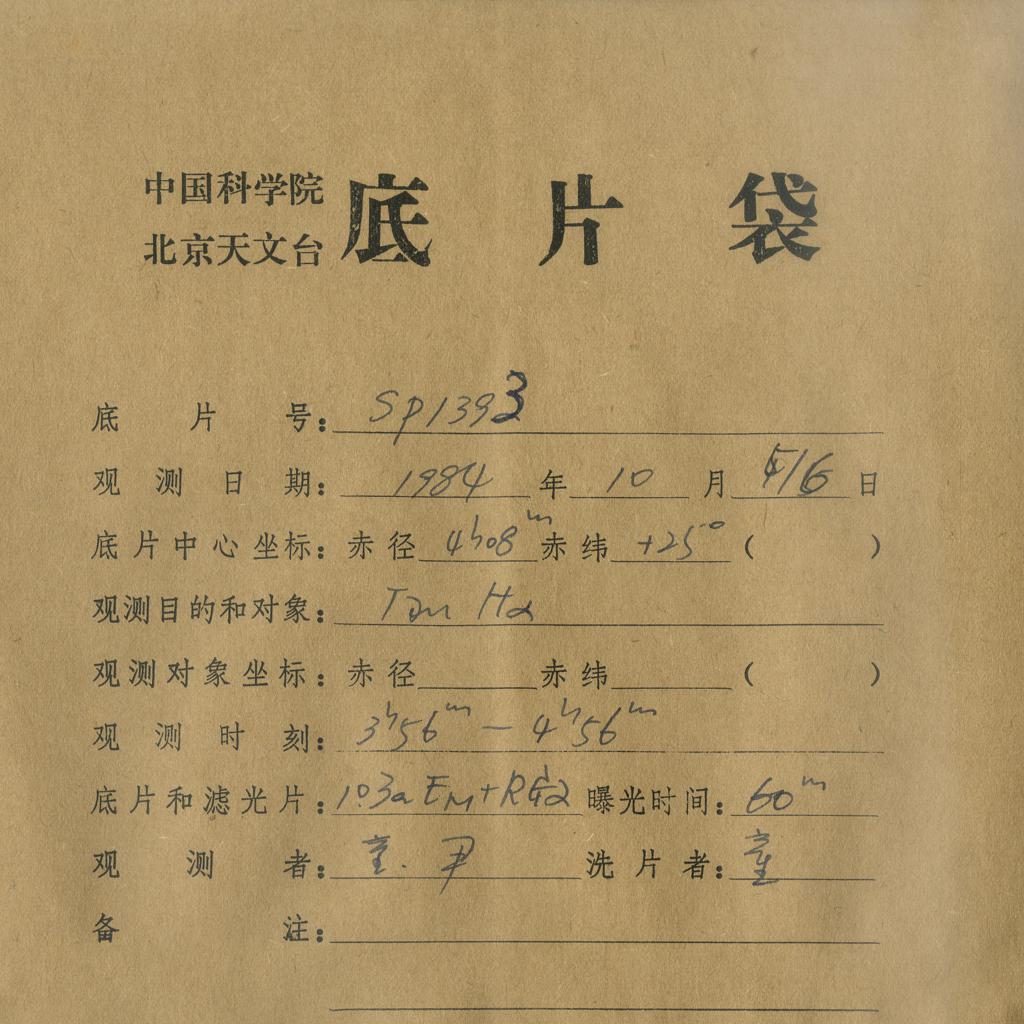 中国科学院
北京天文台
底片袋
底片号：SP1393
观测日期：1984年10月5/6日
底片中心坐标：赤径4h08m赤纬+25°（ ）
观测目的和对象：Tau Hα
观测对象坐标：赤径 赤纬 （ ）
观测时刻：3h56m — 4h56m
底片和滤光片：103aEM+RG2 曝光时间：60m
观测者：童.尹 洗片者：童
备注：